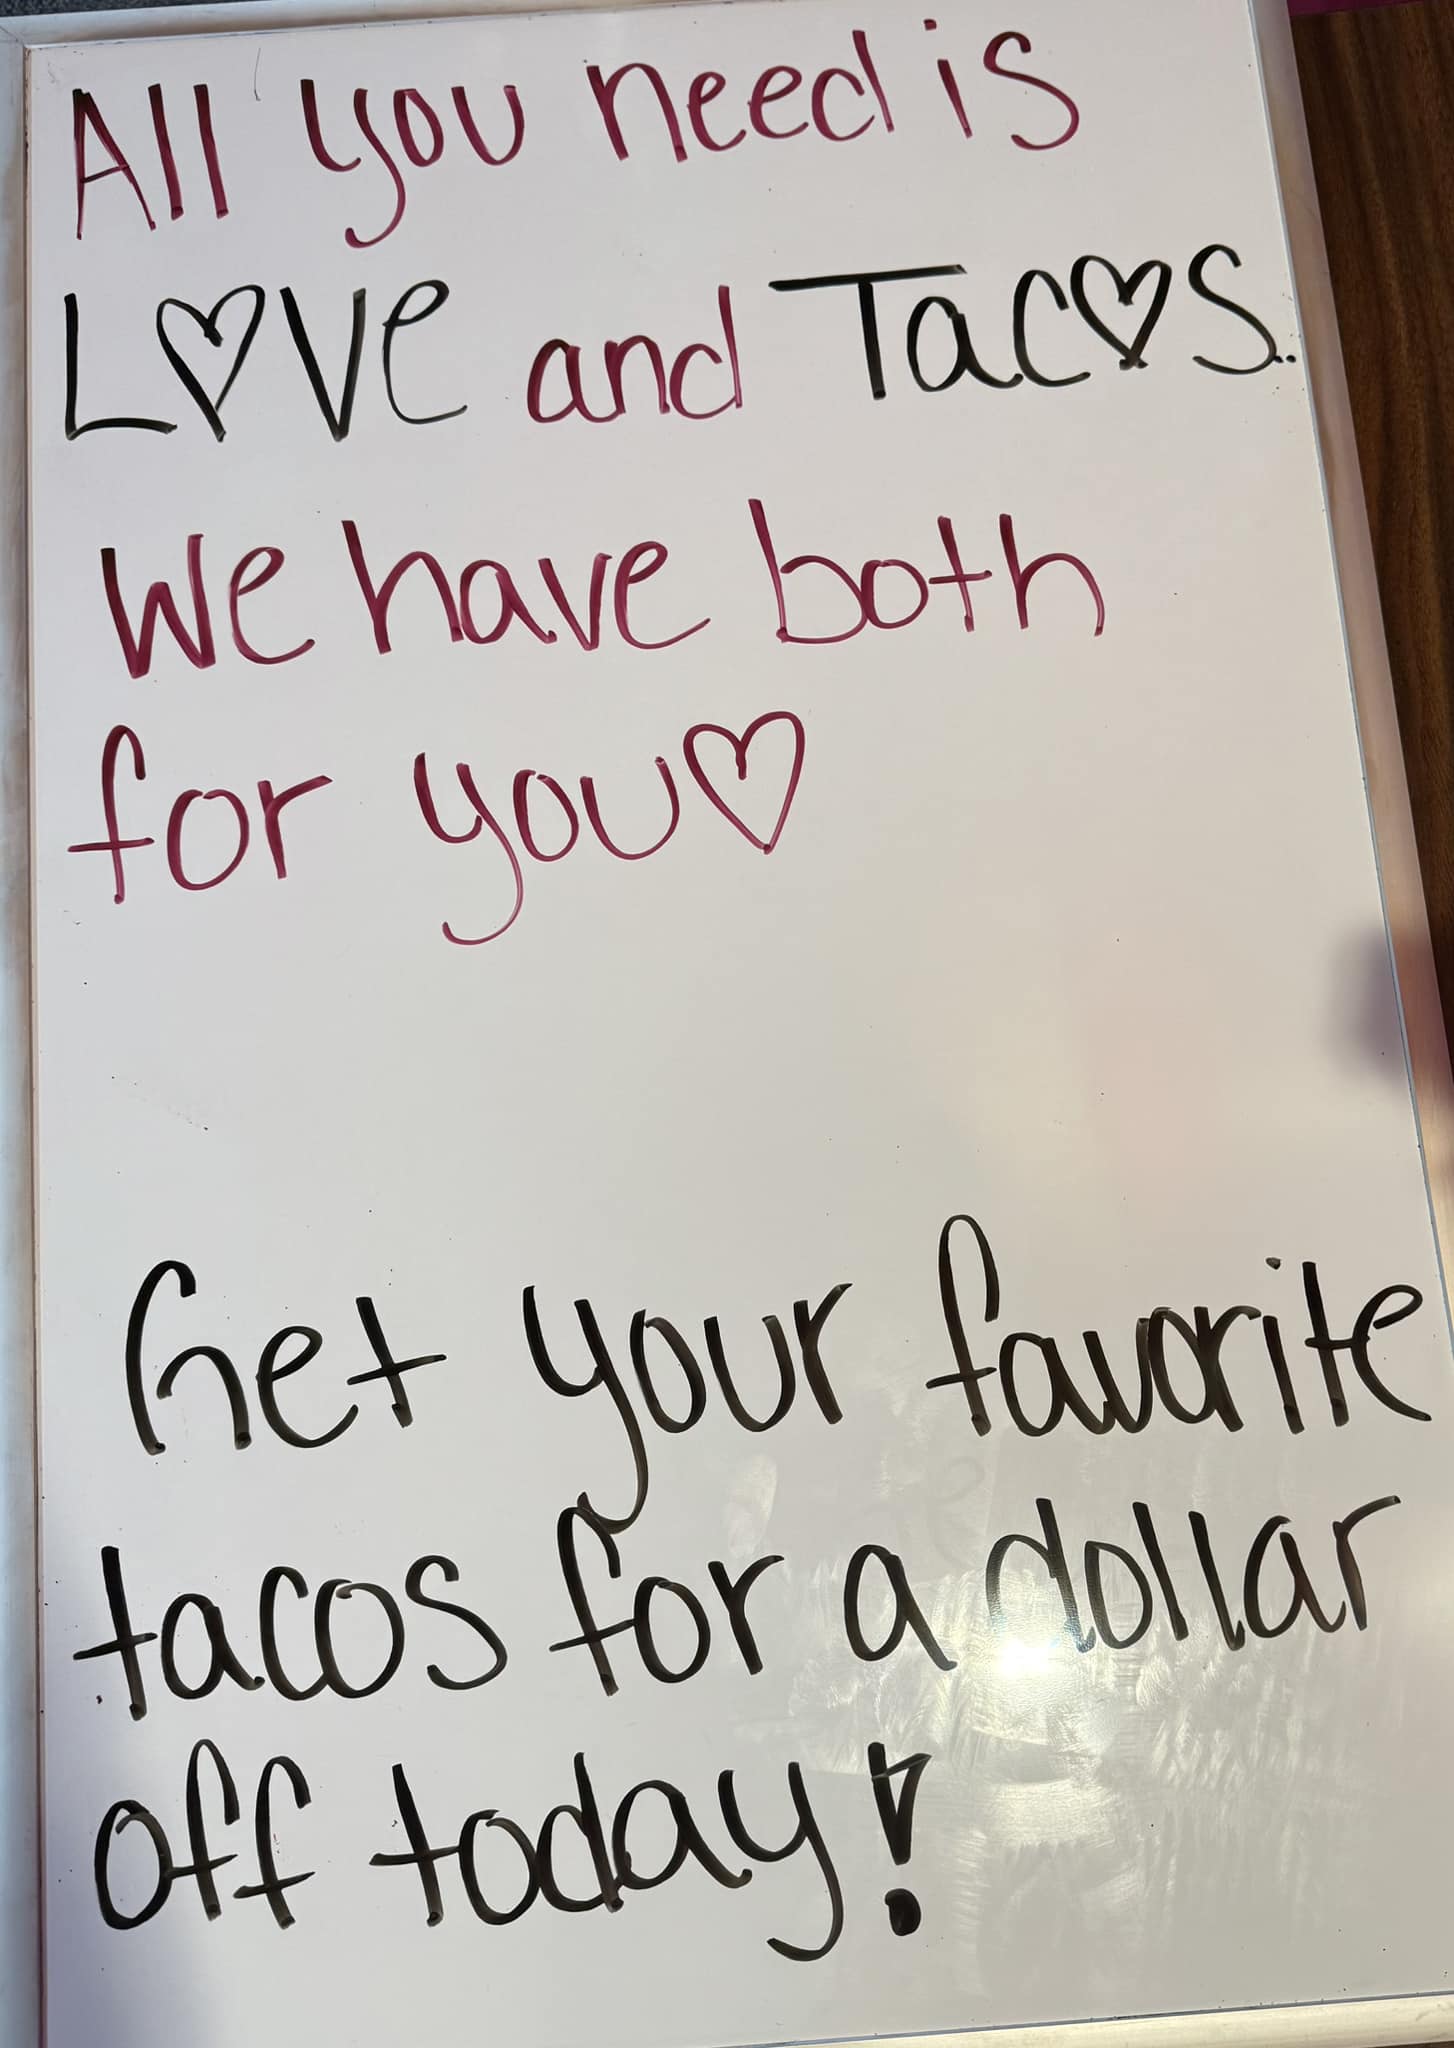 All you need is
L♡ve and Tac♡s..
We have both
for you♡
Get your favorite
tacos for a dollar
off today!